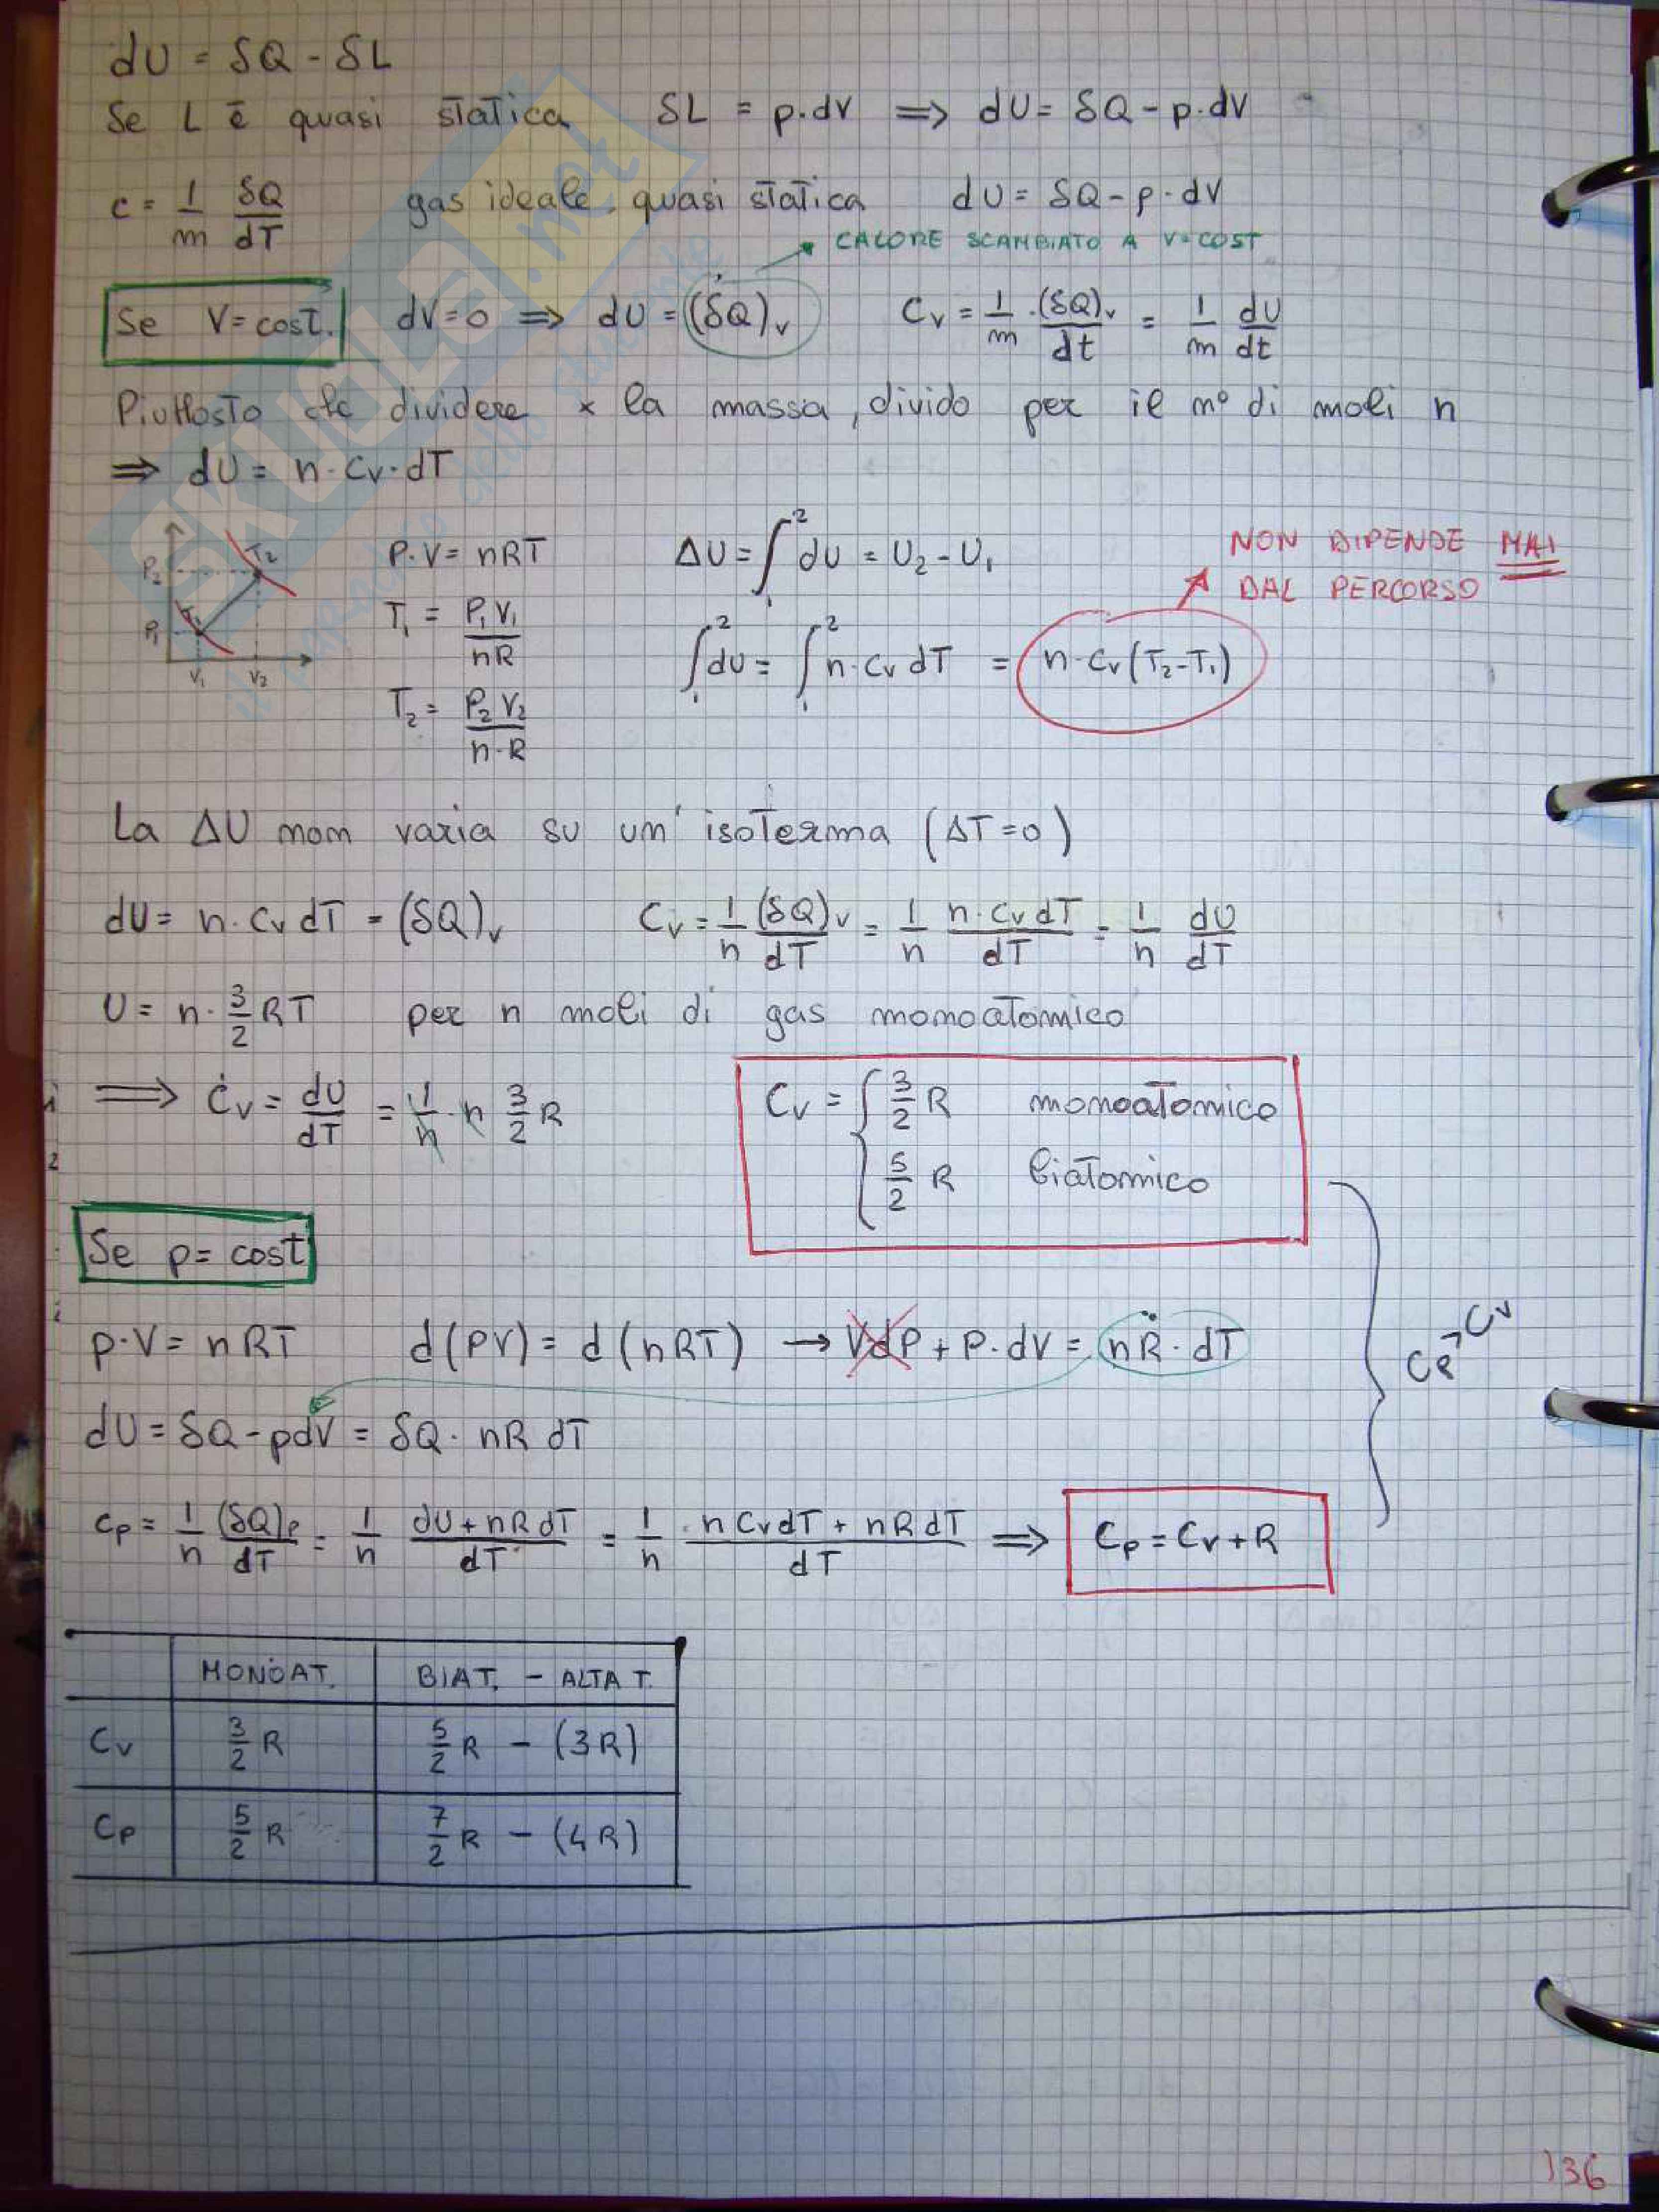 dU = δQ - δL
Se L è quasi statica δL = p·dV ⟹ dU = δQ - p·dV
c = 1/m δQ/dT gas ideale, quasi statica dU = δQ - p·dV
CALORE SCAMBIATO A V=COST
Se V = cost. dV=0 ⟹ dU = (δQ)v Cv = 1/m · (δQ)v/dt = 1/m dU/dt
Piuttosto che dividere × la massa, divido per il n° di moli n
⟹ dU = n·Cv·dT
P2 T2 P·V = nRT ΔU = ∫₁² dU = U2 - U1 NON DIPENDE MAI
DAL PERCORSO
P1 T1 = P1V1/nR ∫₁² dU = ∫₁² n·Cv dT = n·Cv(T2-T1)
V1 V2
T2 = P2V2/n·R
La ΔU non varia su un'isoterma (ΔT=0)
dU = n·Cv dT = (δQ)v Cv = 1/n (δQ)v/dT = 1/n n·Cv dT/dT = 1/n dU/dT
U = n·3/2 RT per n moli di gas monoatomico
⟹ Cv = dU/dT = 1/n · n 3/2 R
Cv = { 3/2 R monoatomico
5/2 R biatomico
Se p = cost
p·V = nRT d(PV) = d(nRT) → VdP + P·dV = nR·dT
Cp > Cv
dU = δQ - pdV = δQ · nR dT
Cp = 1/n (δQ)p/dT = 1/n dU + nR dT/dT = 1/n · nCvdT + nR dT/dT ⟹ Cp = Cv + R
MONOAT. BIAT. - ALTA T.
Cv 3/2 R 5/2 R - (3R)
Cp 5/2 R 7/2 R - (4R)
136
SKUOLA.net
il paradiso dello studente